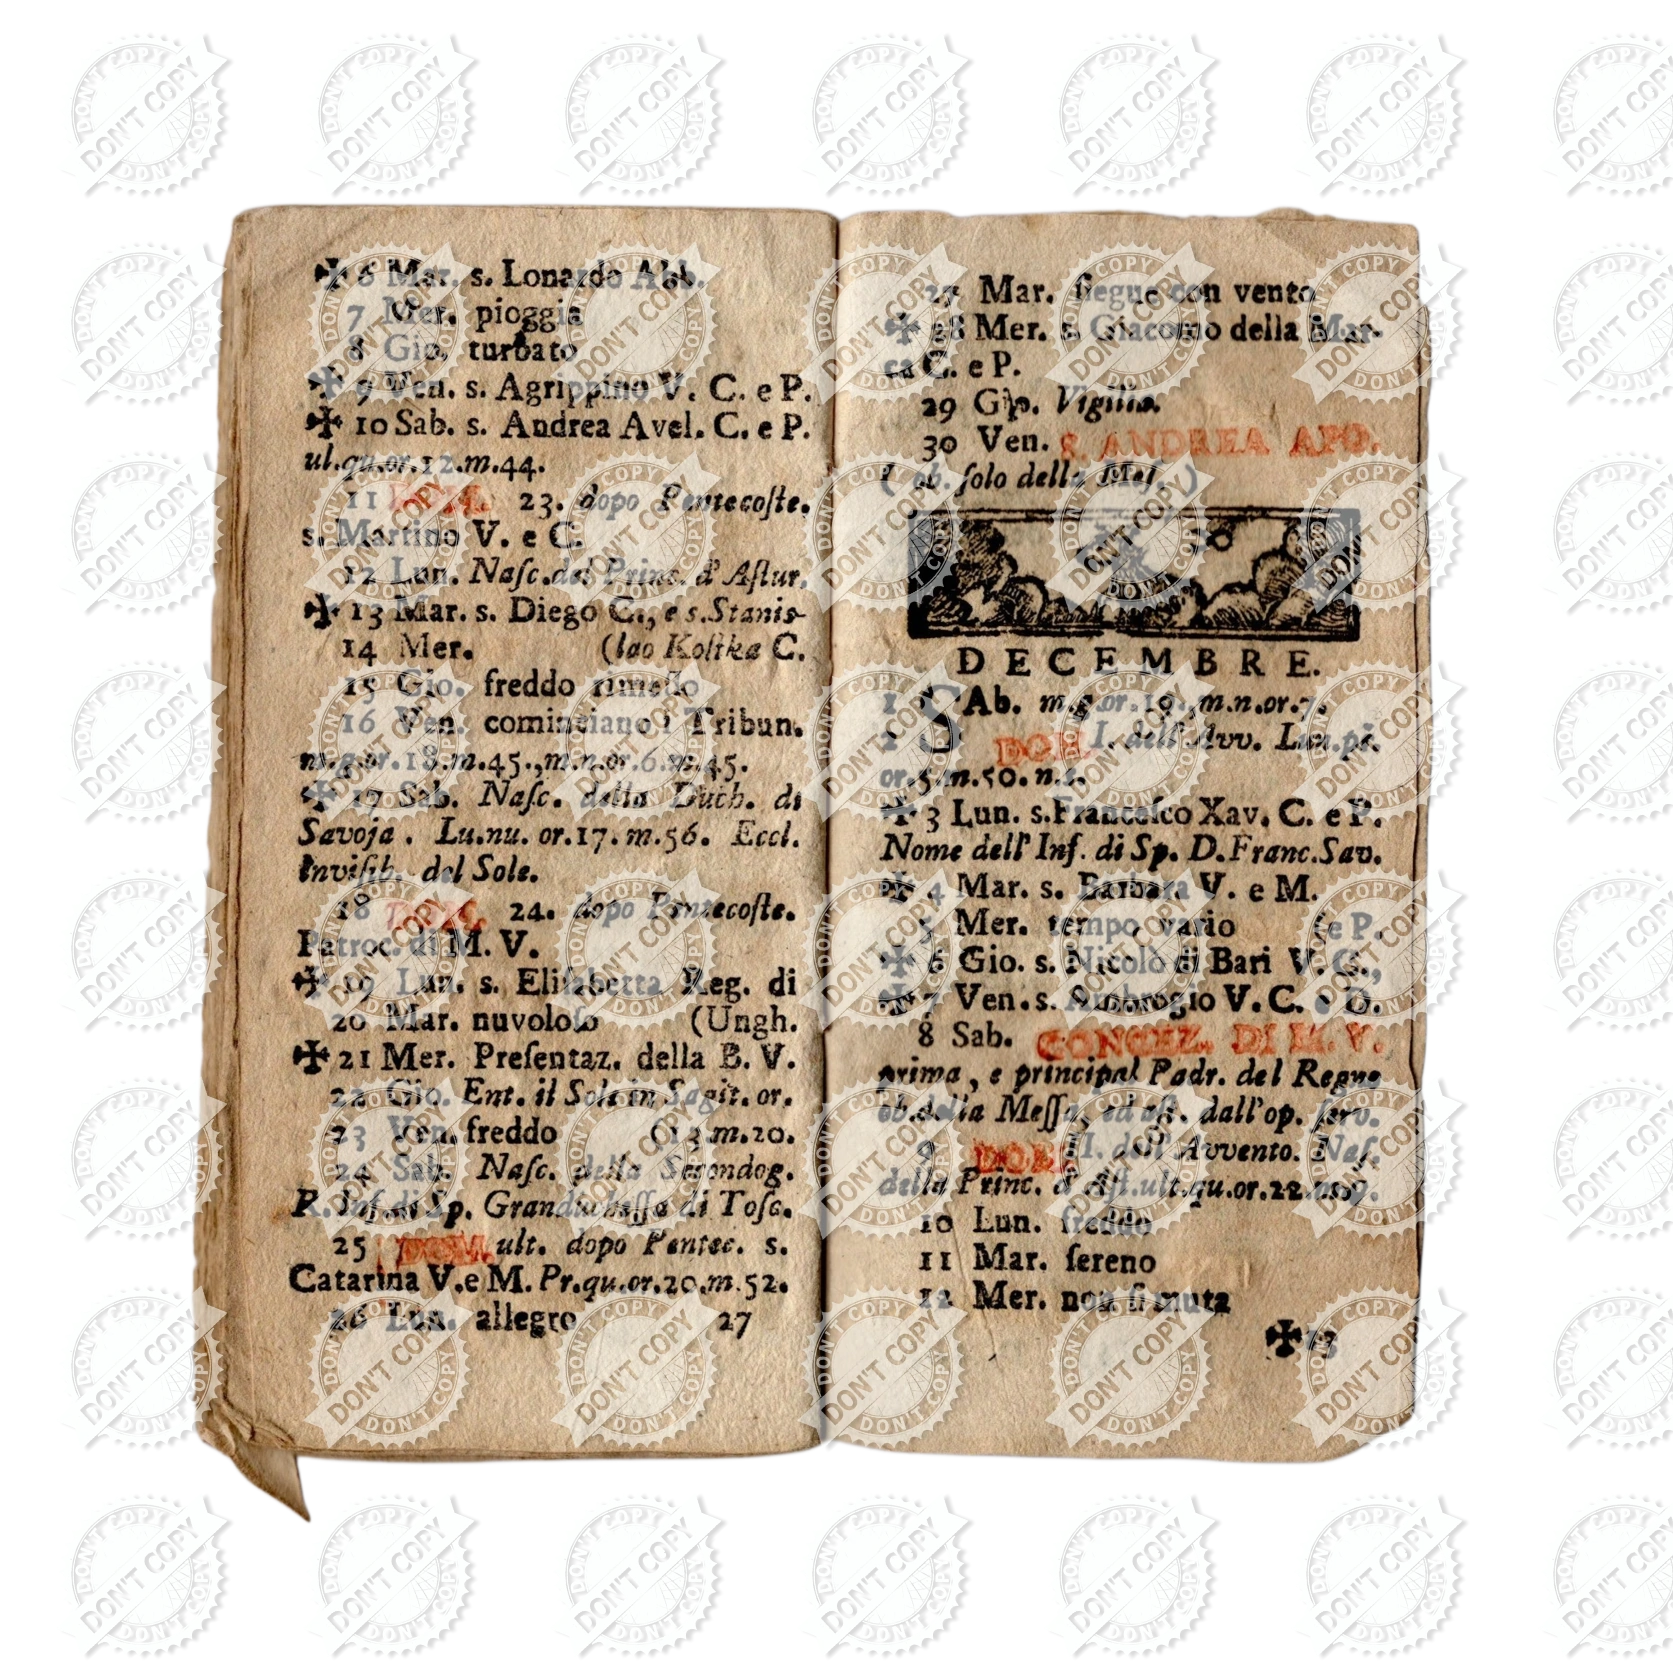 ✠ 6 Mar. s. Lonardo Abb.
7 Mer. pioggia
8 Gio. turbato
✠ 9 Ven. s. Agrippino V. C. e P.
✠ 10 Sab. s. Andrea Avel. C. e P.
ul.qu.or.12.m.44.
11 DOM. 23. dopo Pentecoſte.
s. Martino V. e C.
12 Lun. Naſc.del Princ. d'Aſtur.
✠ 13 Mar. s. Diego C., e s.Stanis-
14 Mer. (lao Koſtka C.
15 Gio. freddo rimeſſo
16 Ven. cominciano i Tribun.
m.g.or.18.m.45.,m.n.or.6.m.45.
✠ 17 Sab. Naſc. della Duch. di
Savoja. Lu.nu. or.17.m.56. Eccl.
inviſib. del Sole.
18 DOM. 24. dopo Pentecoſte.
Patroc. di M. V.
✠ 19 Lun. s. Eliſabetta Reg. di
20 Mar. nuvoloſo (Ungh.
✠ 21 Mer. Preſentaz. della B. V.
22 Gio. Ent. il Sole in Sagit. or.
23 Ven. freddo (13.m.20.
24 Sab. Naſc. della Secondog.
R. Inf.di Sp. Granducheſſa di Toſc.
25 DOM. ult. dopo Pentec. s.
Catarina V.e M. Pr.qu.or.20.m.52.
26 Lun. allegro 27
27 Mar. ſiegue con vento
✠ 28 Mer. s. Giacomo della Mar-
ca C. e P.
29 Gio. Vigilia.
30 Ven. S. ANDREA APO.
( ob. ſolo della Meſ. )
DECEMBRE.
1 SAb. m.g.or.19.,m.n.or.7.
2 DOM. I. dell'Avv. Lun.pi.
or.5.m.50.n.s.
✠ 3 Lun. s.Franceſco Xav. C. e P.
Nome dell'Inf. di Sp. D.Franc.Sav.
✠ 4 Mar. s. Barbara V. e M.
5 Mer. tempo vario (e P.
✠ 6 Gio. s. Nicolò di Bari V. C.,
✠ 7 Ven. s. Ambrogio V. C. e D.
8 Sab. CONCEZ. DI M. V.
prima, e principal Padr. del Regno
ob.della Meſſa, ed aſt. dall'op. ſerv.
9 DOM. II. dell'Avvento. Naſ.
della Princ. d'Aſt.ult.qu.or.22.m.9.
10 Lun. freddo
11 Mar. ſereno
12 Mer. non ſi muta
✠ 13